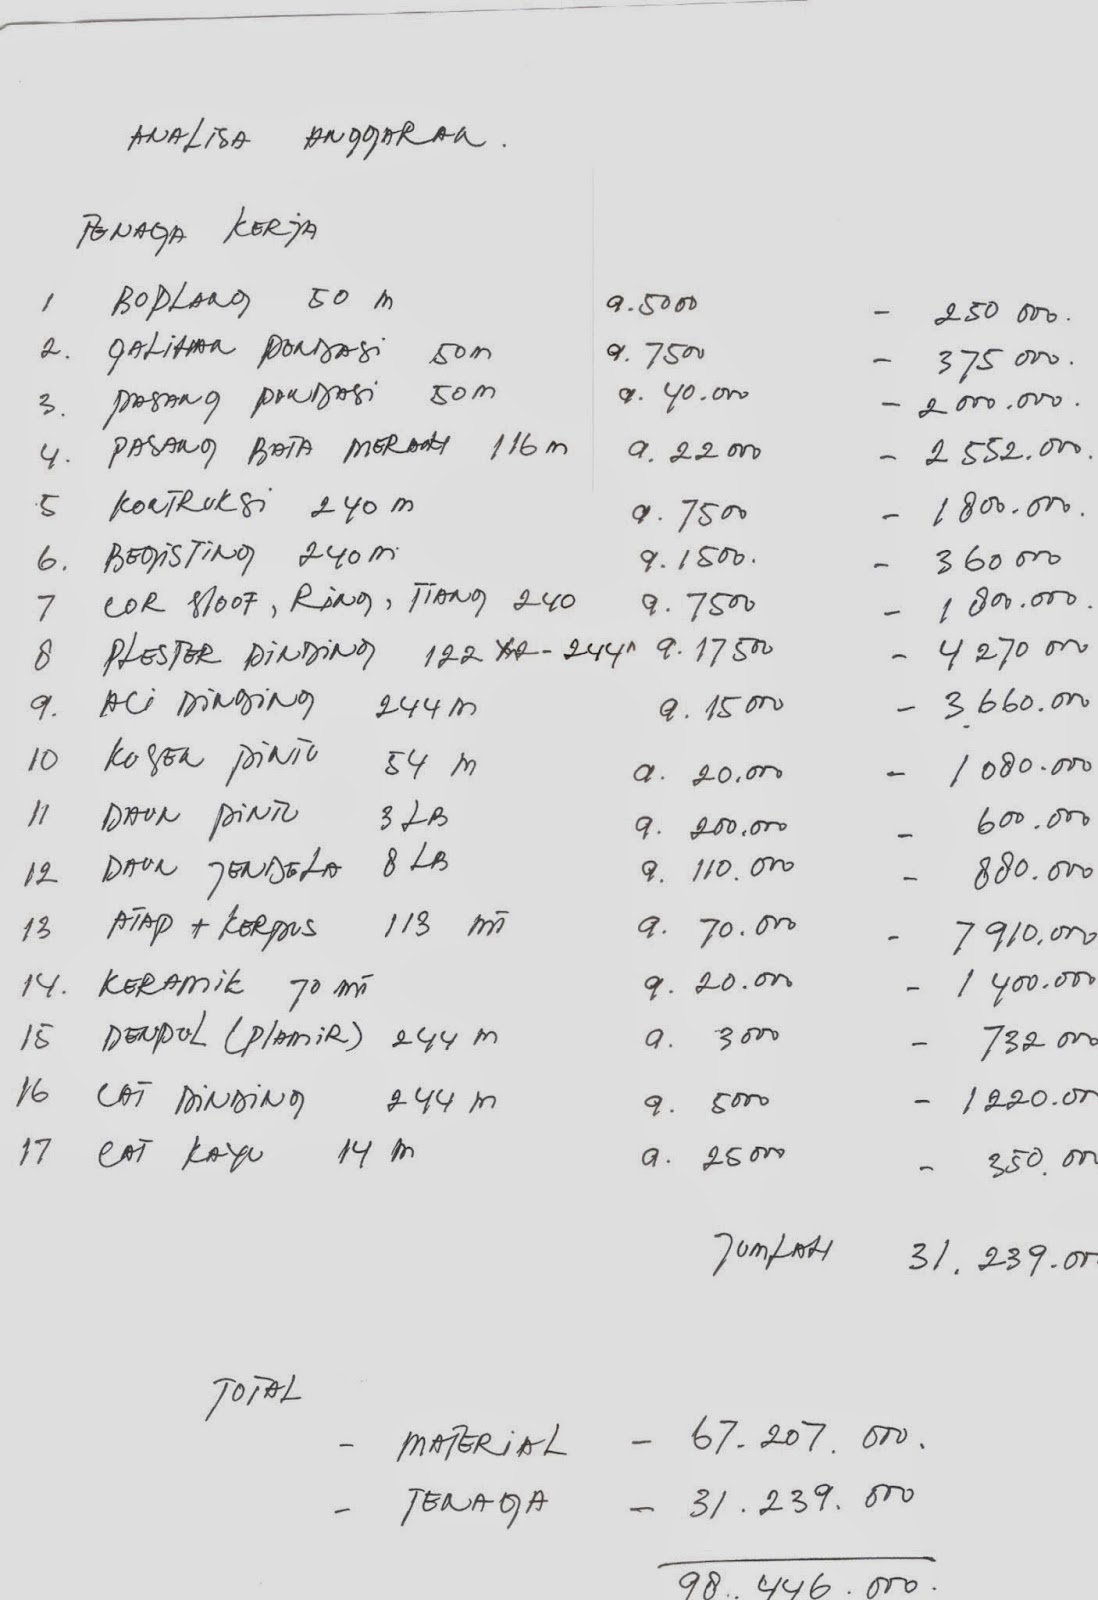 ANALISA ANGGARAN.
TENAGA KERJA
1 BOPLANG 50 m a.5000 - 250 000.
2. GALIHAN PONDASI 50m a. 7500 - 375 000.
3. PASANG PONDASI 50m a. 40.000 - 2 000.000.
4. PASANG BATA MERAH 116 m a. 22 000 - 2 552.000.
5 KONTRUKSI 240 m a. 7500 - 1 800.000.
6. BEGISTING 240 m a. 1500. - 360 000
7 COR SLOOF, RING, TIANG 240 a. 7500 - 1 800.000.
8 PLESTER DINDING 122 X2 - 244 a. 17500 - 4 270 000
9. ACI DINDING 244 m a. 15 000 - 3.660.000
10 KOSEN PINTU 54 m a. 20.000 - 1 080.000
11 DAUN PINTU 3 LB a. 200.000 - 600.000
12 DAUN JENDELA 8 LB a. 110.000 - 880.000
13 ATAP + KERPUS 113 m a. 70.000 - 7 910.000
14. KERAMIK 70 m a. 20.000 - 1 400.000
15 DENPUL (PLAMIR) 244 m a. 3000 - 732 000
16 CAT DINDING 244 m a. 5000 - 1 220.00
17 CAT KAYU 14 m a. 25 000 - 350.000
JUMLAH 31.239.00
TOTAL
- MATERIAL - 67.207.000.
- TENAGA - 31.239.000
98.446.000.